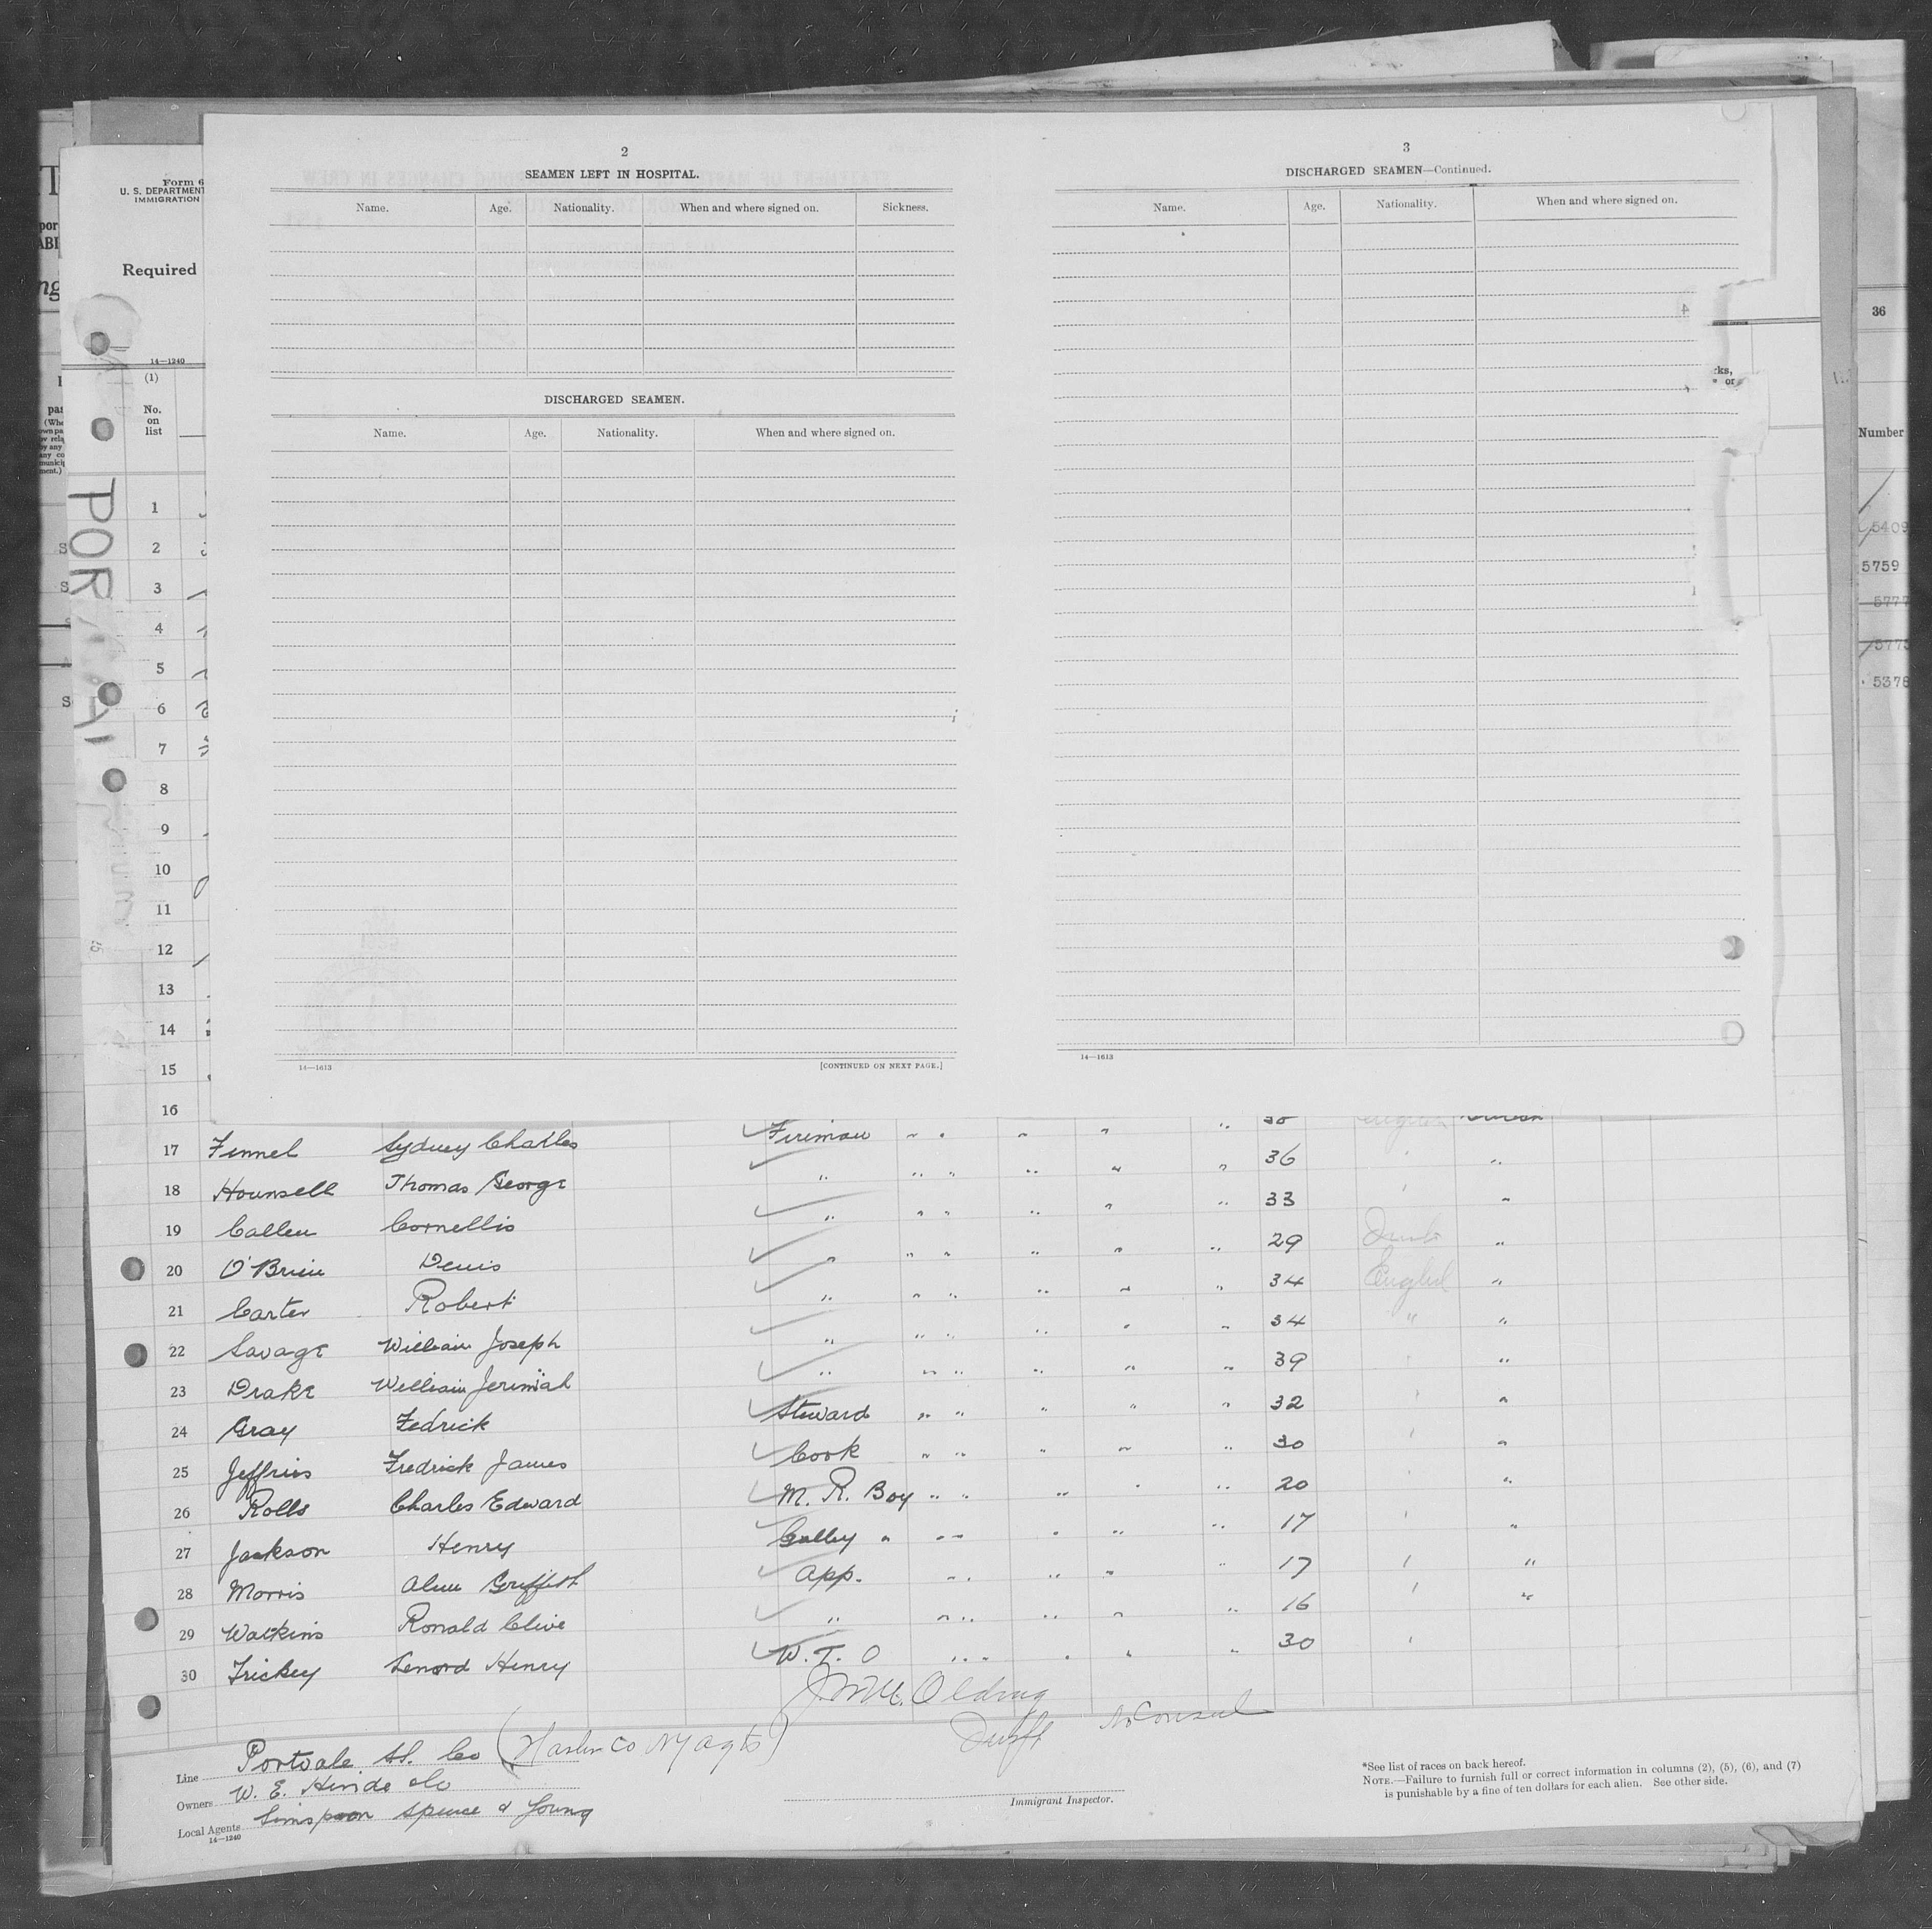 2
SEAMEN LEFT IN HOSPITAL.
Name. Age. Nationality. When and where signed on. Sickness.
DISCHARGED SEAMEN.
Name. Age. Nationality. When and where signed on.
14—1613 [CONTINUED ON NEXT PAGE.]
3
DISCHARGED SEAMEN—Continued.
Name. Age. Nationality. When and where signed on.
14—1613
Form 6
U. S. DEPARTMENT
IMMIGRATION
Required
14—1240
(1)
No.
on
list
POR
1
2
3
4
5
6
7
8
9
10
11
12
13
14
15
16
17 Fennel Sydney Charles Fireman " " " " "
18 Hounsell Thomas George " " " " " " 36 "
19 Callen Cornellis " " " " " " 33 "
20 O'Brien Denis " " " " " " 29 "
21 Carter Robert " " " " " " 34 English "
22 Savage William Joseph " " " " " " 34 " "
23 Drake William Jerimiah " " " " " " 39 "
24 Gray Fedrick Steward " " " " " 32 "
25 Jeffries Fredrick James Cook " " " " " 30 "
26 Rolls Charles Edward M. R. Boy " " " " " 20 "
27 Jackson Henry Galley " " " " " " 17 "
28 Morris Griffith App. " " " " 17 "
29 Watkins Ronald Clive " " " " " " 16 "
30 Trickey Lenord Henry W. T. O " " " " " 30
No Consul
Line Portvale St. Co
Owners W. E. Hinde & Co
Local Agents Simpson Spence & Young
14—1240
Immigrant Inspector.
*See list of races on back hereof.
NOTE.—Failure to furnish full or correct information in columns (2), (5), (6), and (7)
is punishable by a fine of ten dollars for each alien. See other side.
36
Number
5409
5759
5777
5775
5378